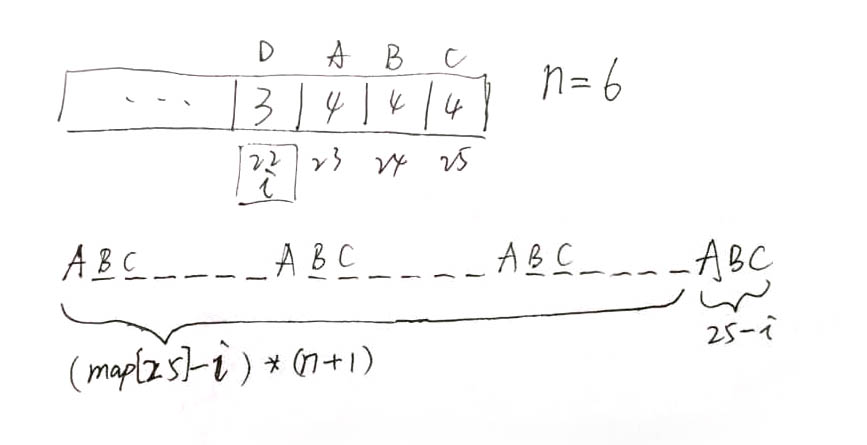 D A B C
... 3 4 4 4 n=6
22 23 24 25
i
A B C _ _ _ _ A B C _ _ _ _ A B C _ _ _ _ A B C
25-i
(map[25]-i) * (n+1)